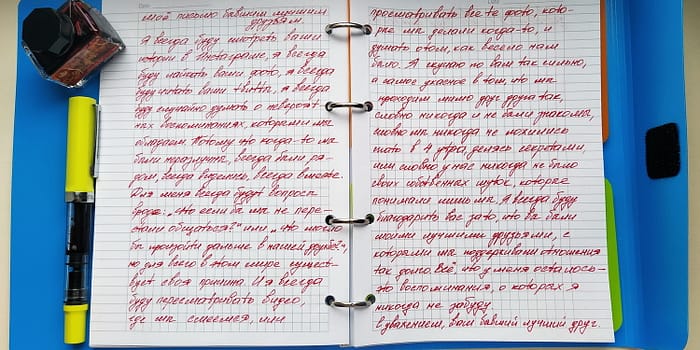 Моё письмо бывшим лучшим
друзьям.
Я всегда буду смотреть ваши
истории в Инстаграме, я всегда
буду лайкать ваши фото, я всегда
буду читать ваши твиты, я всегда
буду случайно думать о невероят-
ных воспоминаниях, которыми мы
обладаем. Потому что когда-то мы
были неразлучны, всегда были ря-
дом, всегда виделись, всегда вместе.
Для меня всегда будут вопросы
вроде: „Что если бы мы не пере-
стали общаться?" или „Что могло
бы произойти дальше в нашей дружбе",
но для всего в этом мире сущест-
вует своя причина. И я всегда
буду пересматривать видео,
где мы смеемся, или
просматривать все те фото, кото-
рые мы делали когда-то, и
думать о том, как весело нам
было. Я скучаю по вам так сильно,
а самое ужасное в том, что мы
проходим мимо друг друга так,
словно никогда и не были знакомы,
словно мы никогда не ложились
спать в 4 утра, делясь секретами,
или словно у нас никогда не было
своих собственных шуток, которые
понимали лишь мы. Я всегда буду
благодарить вас за то, что вы были
моими лучшими друзьями, с
которыми мы поддерживали отношения
так долго. Всё, что у меня осталось –
это воспоминания, о которых я
никогда не забуду.
С уважением, ваш бывший лучший друг.